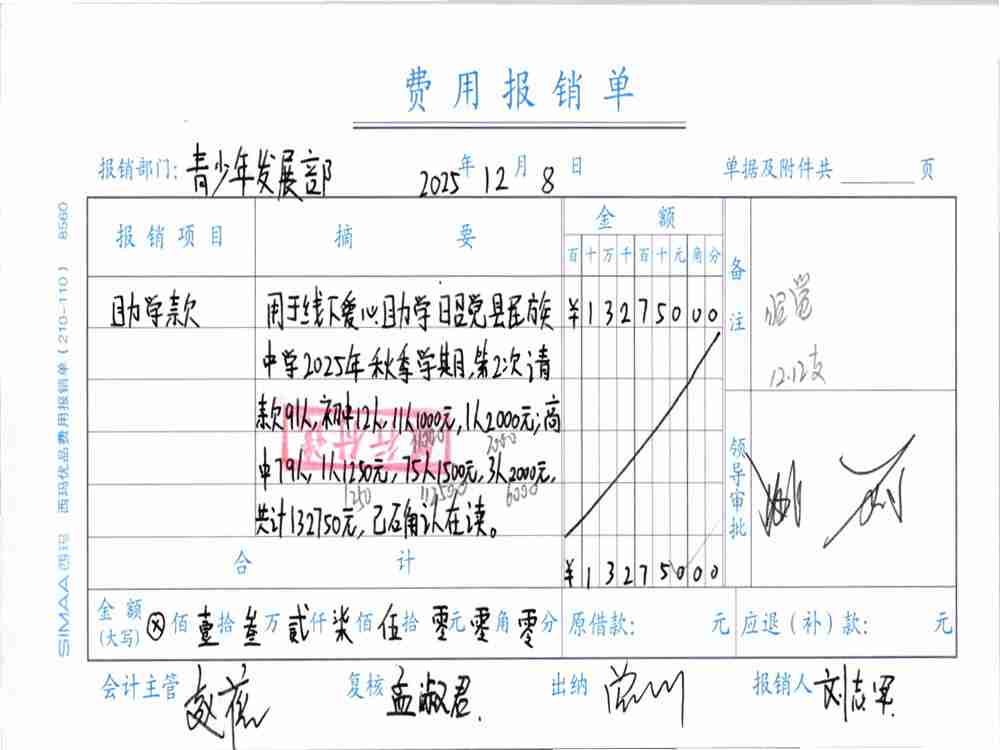 费用报销单
报销部门：青少年发展部 2025年12月8日 单据及附件共 页
报销项目 摘要 金额 备注
百十万千百十元角分
助学款 用于线下爱心助学昭觉县民族 ¥13275000
中学2025年秋季学期,第2次请 12.12支
款91人,初中12人,11人1000元,1人2000元;高
11000 2000
中79人,1人1250元,75人1500元,3人2000元, 领导审批
1250 112500 6000
共计132750元,已确认在读。
合计 ¥13275000
金额(大写) ⊗佰壹拾叁万贰仟柒佰伍拾零元零角零分 原借款: 元 应退(补)款: 元
会计主管 复核 孟淑君 出纳 报销人 刘志军
SIMAA 西玛 西玛优品费用报销单(210-110) 8560